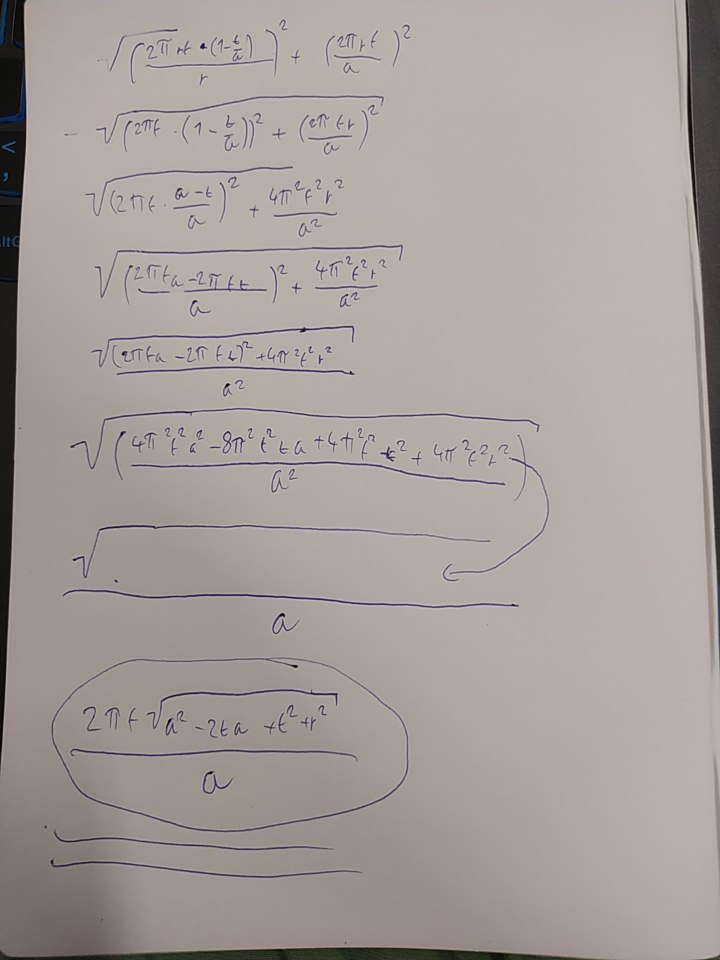 √((2πrt·(1-t/a))/r)² + (2πrt/a)²
√(2πt·(1-t/a))² + (2πtr/a)²
√(2πt·(a-t)/a)² + 4π²t²r²/a²
√((2πta-2πtt)/a)² + 4π²t²r²/a²
√((2πta-2πtt)²+4π²t²r²)/a²
√((4π²t²a²-8π²t²ta+4π²t²t²+4π²t²r²)/a²)
√
a
2πt√(a²-2ta+t²+r²)
a
<
,
AltG